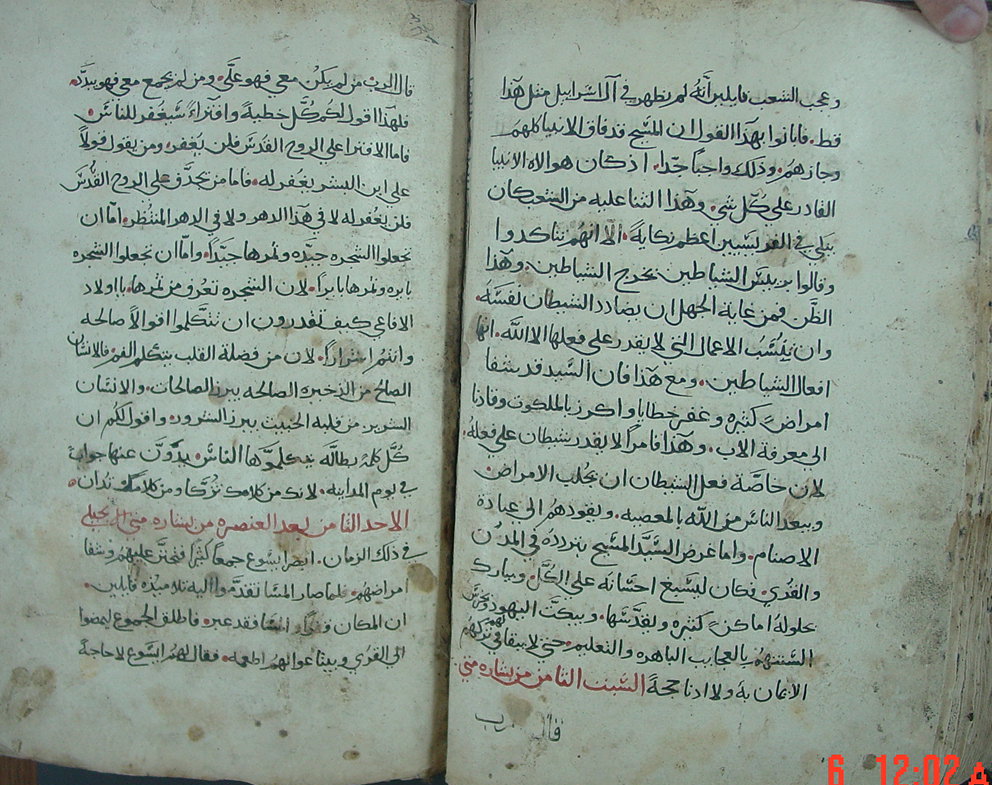 وعجب الشعب قايلين انَّهُ لم يظهر في آل اسراييل مثل هَذا
قط. فابانوا بهذا القول ان المسَّيح قد فاق الانبيا كلهم
وجازهم. وذلك واجبًا جدًا. اذ كان هو الاه الانبيا
القادر على كُلّ شي. وهَذا الثنا عليه من الشعب كان
في الفريسَّيين اعظم نكايةً. الا انهُم تناكدوا
وقالوا بريسَّ الشياطين يخرج الشياطين. وهَذا
الظَّن فمن غاية الجهل ان يضادد الشيطان نفسَّهُ.
وان الاعمال التي لا يقدر على فعلها الا الله. انها
افعال الشياطين. ومع هَذا فان السَّيد قد شفا
امراضٍ كثيره وغفر خطايا واكرز بالملكوت وقادنا
الى معرفة الاب. وهَذا فامرًا لا يقدر شيطان على فعلهُ.
لان خاصَّة فعل الشيطان ان يجلب الامراض.
ويبعد الناسَّ من الله بالمعصيه. ويقودهُم الى عبادة
الاصنام. واما غرض السَّيَّد المسَّيح بتردده في المدُن
والقُرى. فكان ليسَّبغ احسَّانه على الكُلّ. ويبارك
بحلوله اماكنٍ كثيره ويقدَّسَّها. ويبكتَّ اليهود
بالعجايب الباهره والتعليم. حتي لا يبقا في
الايمان بهَ ولا ادنا حجةً السَّبت الثامن من بشاره متى.
قال الرب
قال الرب من لم يكُن معي فهو علَّي. ومن لم يجمع معي فهو يبدَّد.
فلهَذا اقول لكُم كُلّ خطيةً وافتراءً سَّيغُفر للناسَّ.
فاما الافترا على الروح القدسَّ فلن يغُفر. ومن يقول قولاً
على ابن البشر يغُفر له. فاما من يجدَّف على الروح القُدُسَّ
فلن يغُفر له لا في هَذا الدهر ولا في الدهر المنتُظر. امَّا ان
تجعلوا الشجره جيَّده وثمرها جيَّدًا. وامَّا ان تجعلوا الشجره
بايره وثمرها بايرًا. لان الشجره تعُرف من ثمرها. يا اولاد
الافاعي كيف تقدرون ان تتكَّلموا اقوالاً صالحه
وانتُم اشرارًا. لان من فضلة القلب يتكلم الفم. فالانسَّان
الصالح من الذخيره الصالحه يبرز الصالحات. والانسَّان
الشرير من قلبه الخبيث يبرز الشرور. واقول لكُم ان
كُلّ كلمةٍ بطاله يتكلموَّها الناسَّ. يدُّون عنها جوابً
في يوم المداينه. لانك من كلامك تزُكَّا ومن كلامك تدُان.
الاحد الثامن بعد العنصره من بشاره متى الانجيلي
في ذلك الزمان. ابصر ايسَّوع جمعًا كثيرًا فتحنَّن عليهم وشفا
امراضهُم. فلما صار المسَّا تقدَّموا اليه تلاميذه قايلين.
ان المكان قفرًا. والمسَّا فقد عبر. فاطلق الجموع ليمضوا
الى القُرى ويبتاعوا لهُم اطعمه. فقال لهُم ايسَّوع لا حاجةً
6 12:02